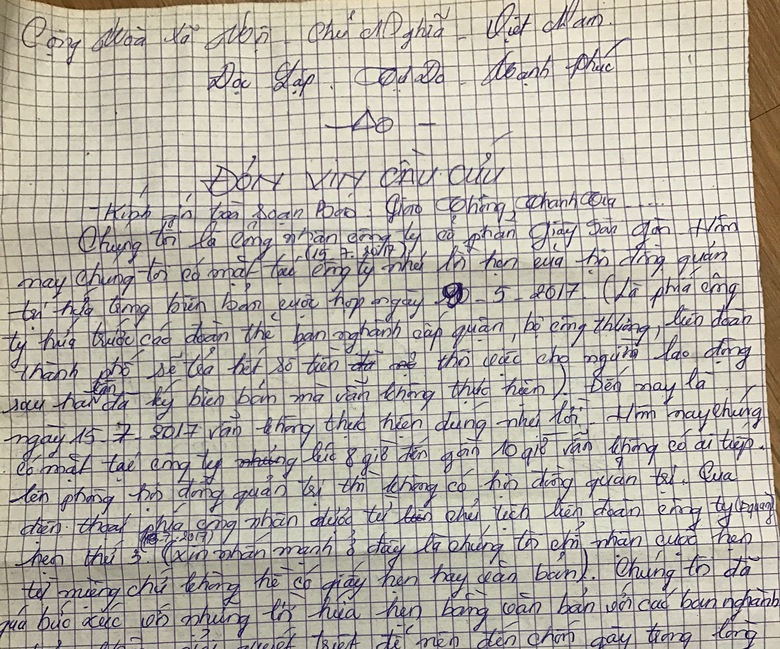 Cộng Hoà Xã Hội - Chủ Nghĩa - Việt Nam.
Độc Lập. Tự Do - Hạnh Phúc
ĐƠN XIN CẦU CỨU
- Kính gửi toà soạn Báo. Giao Thông Thành Của.....
Chúng tôi là công nhân công ty cổ phần Giày Sài gòn. Hôm
(15-7-2017)
nay chúng tôi có mặt tại công ty như lời hẹn của hội đồng quản
trị hứa từng biên bản cuộc họp ngày 9-5-2017. (Là phía công
ty hứa trước các đoàn thể ban nghành cấp quận, bộ công thương, liên đoàn
thành phố sẽ trả hết số tiền thôi việc cho người lao động
sau hai lần đã ký biên bản mà vẫn không thực hiện). Đến nay là
ngày 15-7-2017 vẫn không thực hiện đúng như lời. Hôm nay chúng
có mặt tại công ty lúc 8 giờ đến gần 10 giờ vẫn không có ai tiếp.
lên phòng hội đồng quản trị thì không có hội đồng quản trị. Qua
điện thoại phía công nhân được từ chủ tịch liên đoàn công ty
hẹn thứ 3. (Xin nhấn mạnh ở đây là chúng tôi chỉ nhận cuộc hẹn
từ miệng chứ không hề có giấy hẹn hay văn bản). Chúng tôi đã
quá bức xúc với những lời hứa hẹn bằng văn bản với các ban nghành
triệt để nên đến chốn gây trong lòng